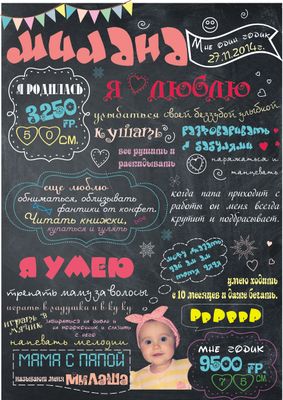 МИЛАНА
Мне один годик
27.11.2014г.
Я РОДИЛАСЬ
3250
ГР.
50 СМ.
Я ЛЮБЛЮ
улыбаться своей беззубой улыбкой
кушать
разговаривать
с бабулями
все рушить и
раскидывать
наряжаться и
танцевать
еще люблю
обниматься, облизывать
фантики от конфет.
Читать книжки,
купаться и гулять
когда папа приходит с
работы он меня всегда
крутит и подбрасывает.
Я УМЕЮ
трепать маму за волосы
играть в ладушки и в ку ку
играть
напевать мелодии
умею ходить
с 10 месяцев и даже бегать.
МАМА С ПАПОЙ
называют меня
МИЛАША
мне годик
9500
ГР.
75 СМ.